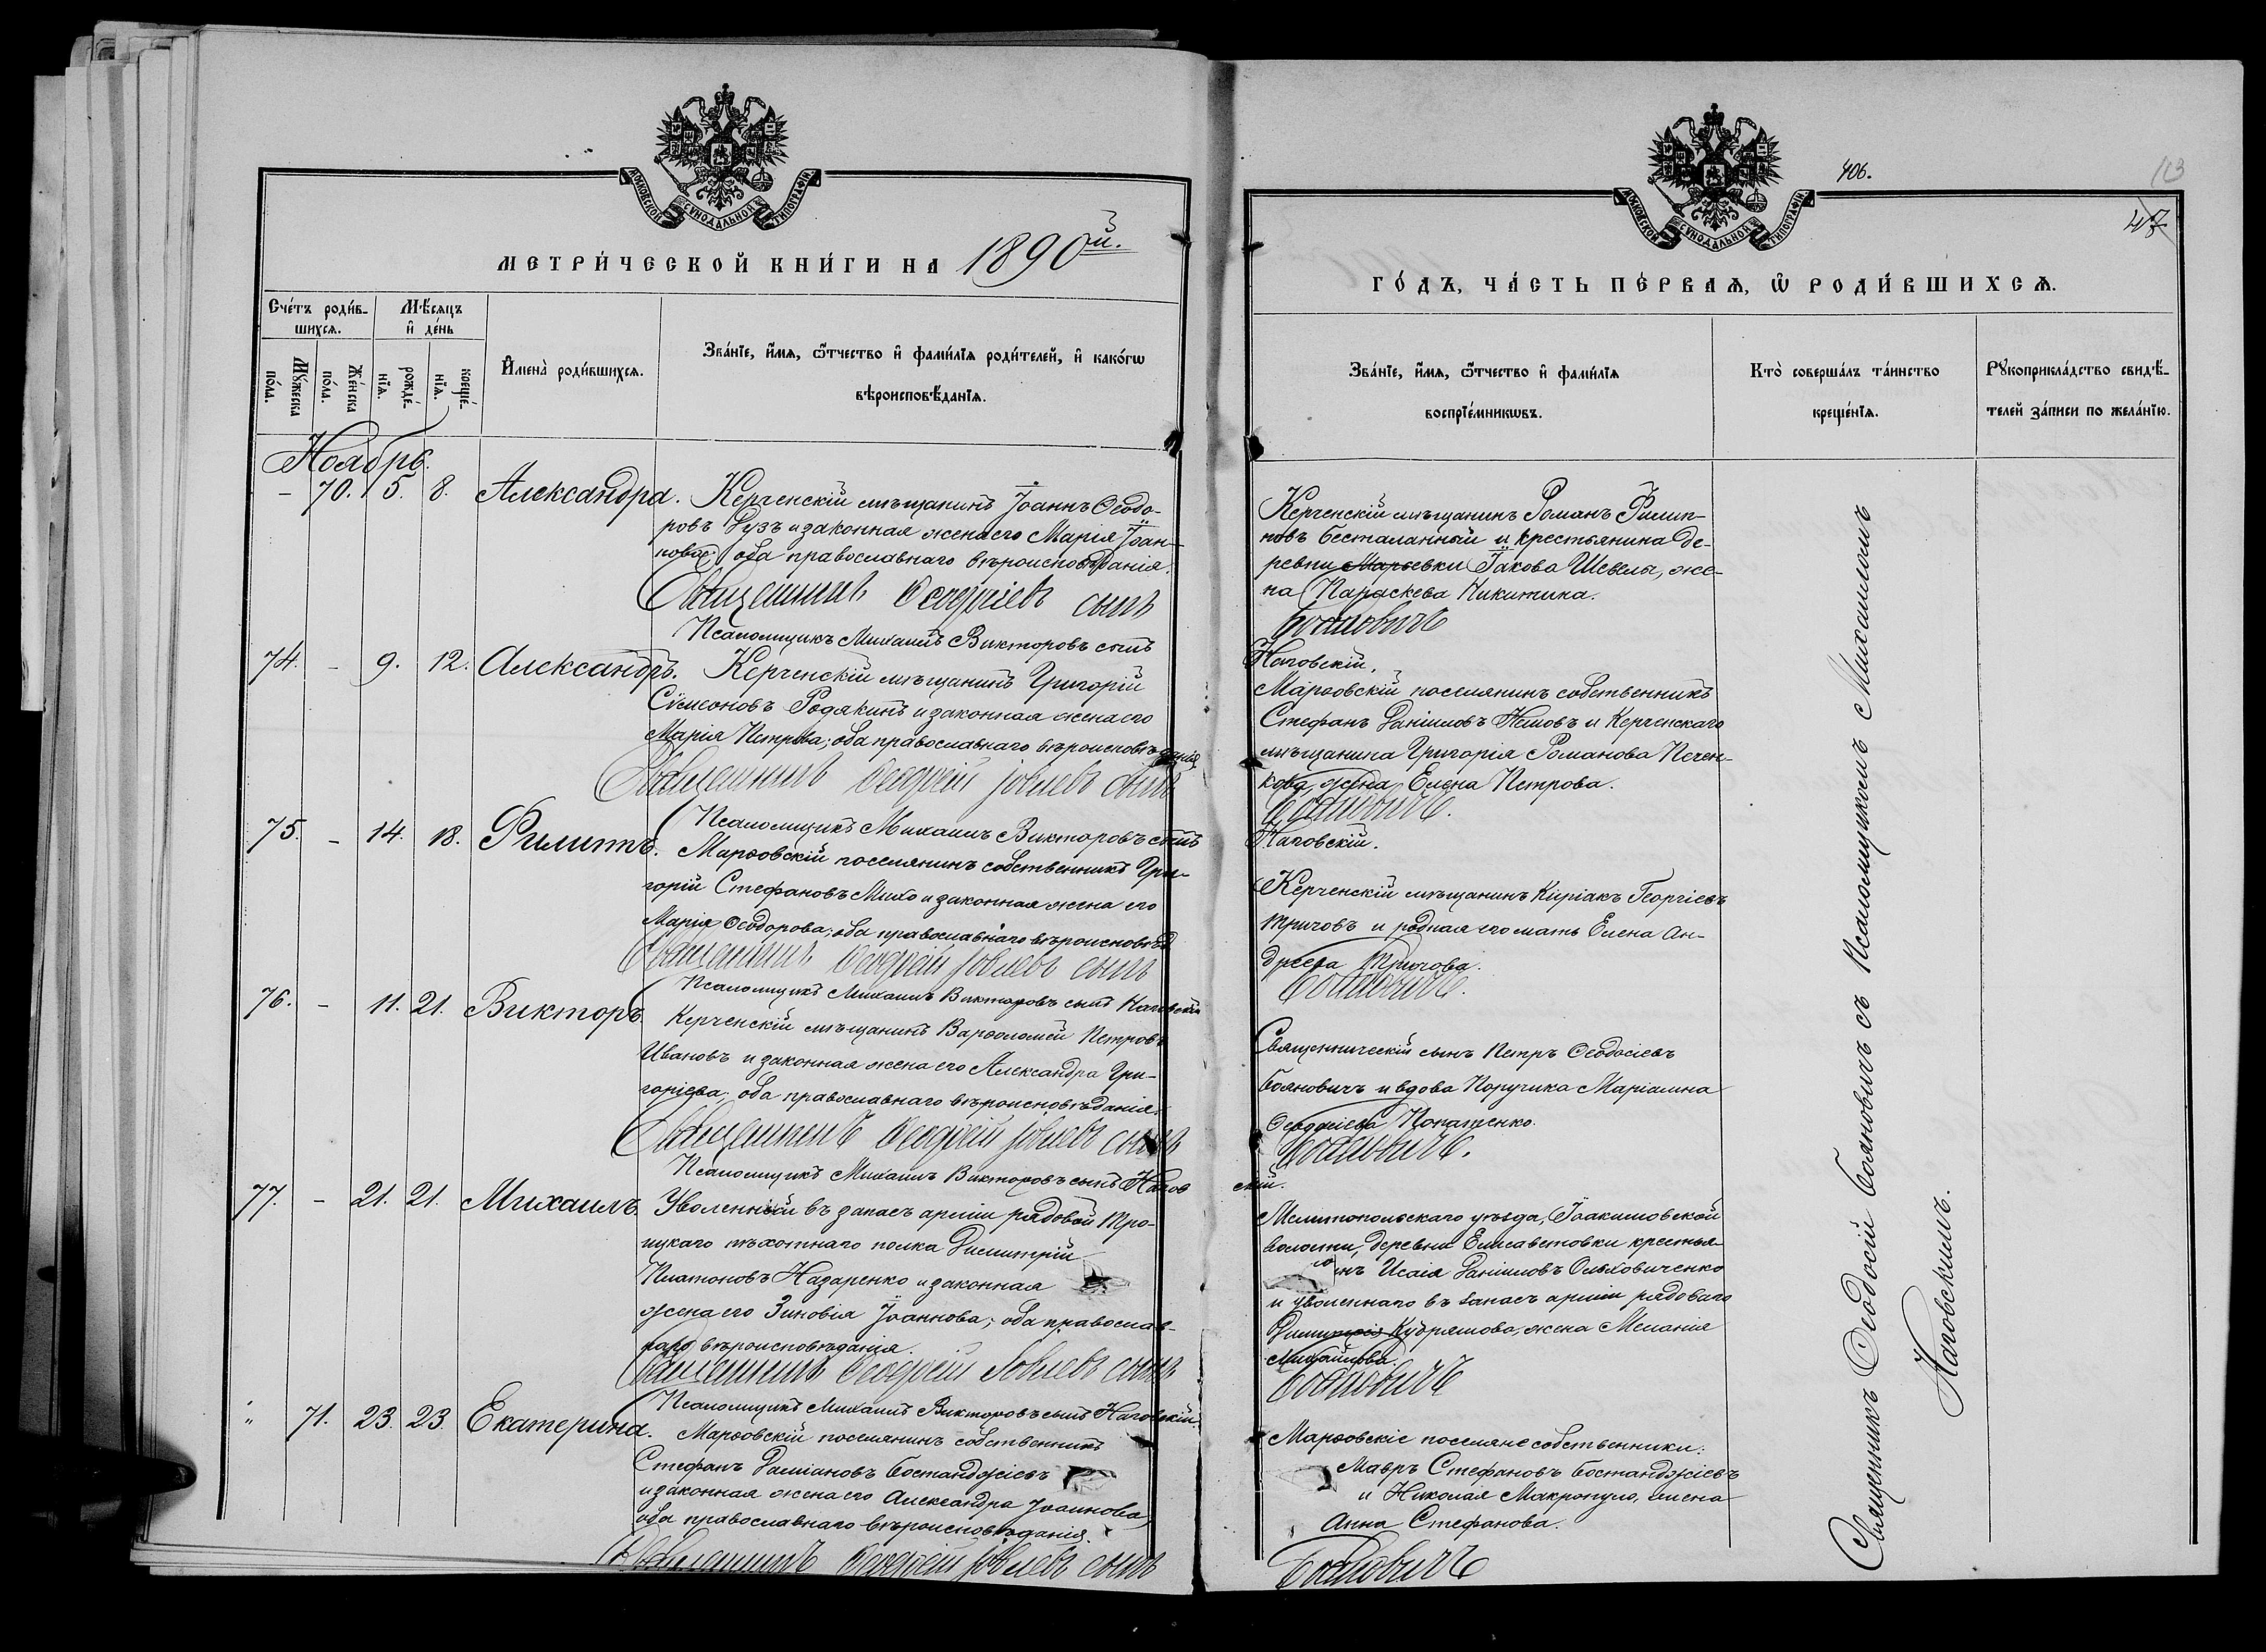 МОСКОВСКОЙ СУНОДАЛЬНОЙ ТИПОГРАФІИ
МЕТРИ́ЧЕСКОЙ КНИ́ГИ НА 1890й.
Сче́тъ роди́в-
шихсѧ.
Мѣ́сѧцъ
и҆ де́нь
Мꙋ́жеска
по́ла.
Же́нска
по́ла.
рожде́-
нїѧ.
креще́-
нїѧ.
И҆мена̀ роди́вшихсѧ.
Зва́нїе, и҆́мѧ, ѻ҆́тчество и҆ фамı́лїѧ роди́телей, и҆ како́гѡ
вѣроисповѣ́данїѧ.
Ноябрь.
- 70. 5. 8. Александра.
Керченскій мѣщанинъ Іоаннъ Ѳеодо-
ровъ Гузъ и законная жена его Марія Іоан-
нова, оба православнаго вѣроисповѣданія.
Священникъ Ѳеодосій сынъ
Псаломщикъ Михаилъ Викторовъ сынъ
74. - 9. 12. Александръ.
Керченскій мѣщанинъ Григорій
Сѵмеоновъ Родякинъ и законная жена его
Марія Петрова; оба православнаго вѣроисповѣданія
Священникъ Ѳеодосій Іовлевъ сынъ
Псаломщикъ Михаилъ Викторовъ сынъ
75. - 14. 18. Филиппъ.
Марѳовскій поселянинъ собственникъ Гри-
горій Стефановъ Михо и законная жена его
Марія Ѳеодорова; оба православнаго вѣроисповѣд
Священникъ Ѳеодосій Іовлевъ сынъ
Псаломщикъ Михаилъ Викторовъ сынъ Наговскій
76. - 11. 21. Викторъ.
Керченскій мѣщанинъ Варѳоломей Петровъ
Ивановъ и законная жена его Александра Гри-
горіева; оба православнаго вѣроисповѣданія.
Священникъ Ѳеодосій Іовлевъ сынъ
Псаломщикъ Михаилъ Викторовъ сынъ Нагов
77. - 21. 21. Михаилъ.
Уволенный въ запасъ арміи рядовой Тро-
ицкаго пѣхотнаго полка Димитрій
Платоновъ Назаренко и законная
жена его Зиновія Іоаннова; оба православ-
наго вѣроисповѣданія.
Священникъ Ѳеодосій Іовлевъ сынъ
Псаломщикъ Михаилъ Викторовъ сынъ Наговскій.
" 71. 23. 23. Екатерина.
Марѳовскій поселянинъ собственникъ
Стефанъ Даміановъ Бостанджіевъ
и законная жена его Александра Іоаннова,
оба православнаго вѣроисповѣданія.
Священникъ Ѳеодосій Іовлевъ сынъ
МОСКОВСКОЙ СУНОДАЛЬНОЙ ТИПОГРАФІИ
406.
113
47
ГО́ДЪ, ЧА́СТЬ ПЕ́РВАѦ, Ѡ҆ РОДИ́ВШИХСѦ.
Зва́нїе, и҆́мѧ, ѻ҆́тчество и҆ фамı́лїѧ
воспрїе́мникѡвъ.
Кто̀ соверша́лъ та́инство
креще́нїѧ.
Рꙋкоприкла́дство свидѣ́-
телей за́писи по жела́нїю.
Керченскій мѣщанинъ Романъ Филип-
повъ Бесталанный и крестьянина де-
ревни Марьевки Іакова Шевелы, же-
на Параскева Никитина.
Бояновичъ
Наговскій.
Марѳовскій поселянинъ собственникъ
Стефанъ Даніиловъ и Керченскаго
мѣщанина Григорія Романова Печен-
кова, жена Елена Петрова.
Бояновичъ.
Наговскій.
Керченскій мѣщанинъ Киріакъ Георгіевъ
Тричовъ и родная его мать Елена Ан-
дреева Тричова.
Бояновичъ.
Священническій сынъ Петръ Ѳеодосіевъ
Бояновичъ и вдова Поручика Маріамна
Ѳеодосіева Попащенко.
Бояновичъ.
скій.
Мелитопольскаго уѣзда, Іоакимовской
волости, деревни Елисаветовки крестья-
нинъ Исаія Даніиловъ Ольховиченко
и уволеннаго въ запасъ арміи рядоваго
Димитрія Кудряшова, жена Меланія
Михайлова.
Бояновичъ
Марѳовскіе поселяне собственники:
Мавръ Стефановъ Бостанджіевъ
и Николая Макропуло, жена
Анна Стефанова.
Бояновичъ
Священникъ Ѳеодосій Бояновичъ съ Псаломщикомъ Михаиломъ
Наговскимъ.